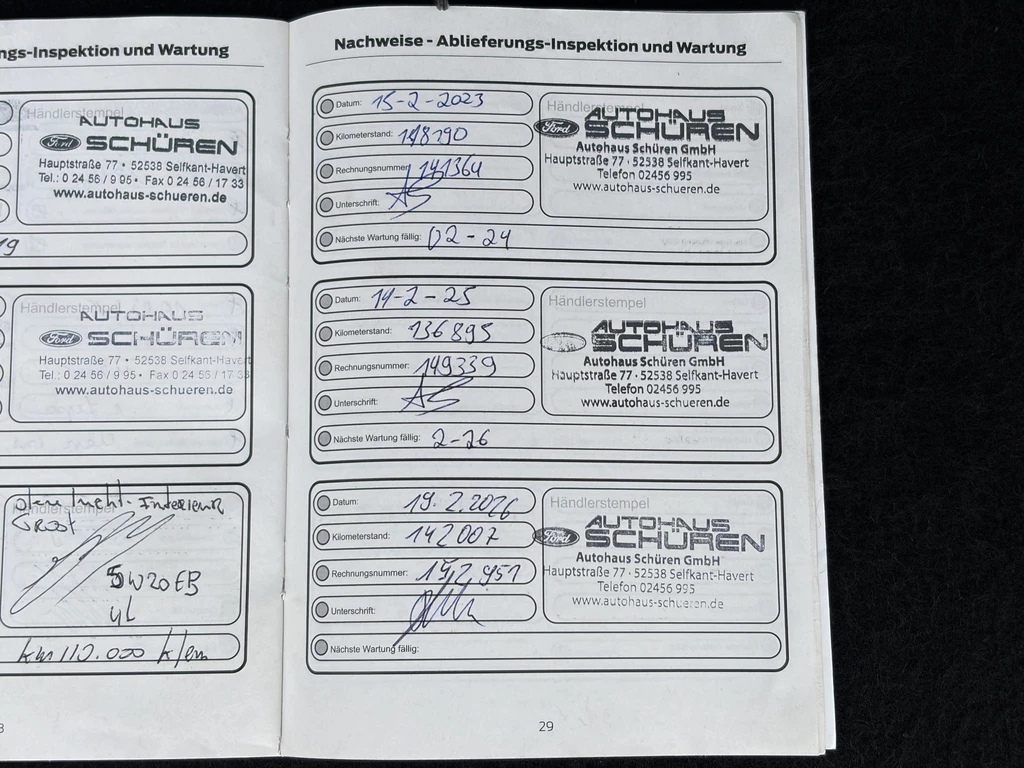 ngs-Inspektion und Wartung
Händlerstempel
AUTOHAUS
Ford SCHÜREN
Hauptstraße 77 • 52538 Selfkant-Havert
Tel.: 0 24 56 / 9 95 • Fax 0 24 56 / 17 33
www.autohaus-schueren.de
19
Händlerstempel
AUTOHAUS
Ford SCHÜREN
Hauptstraße 77 • 52538 Selfkant-Havert
Tel.: 0 24 56 / 9 95 • Fax 0 24 56 / 17 33
www.autohaus-schueren.de
Händlerstempel
5W20EB
4L
Nachweise - Ablieferungs-Inspektion und Wartung
Datum: 15-2-2023
Kilometerstand: 118790
Rechnungsnummer: 141364
Unterschrift: AS
Nächste Wartung fällig: 02-24
Händlerstempel
AUTOHAUS
Ford SCHÜREN
Autohaus Schüren GmbH
Hauptstraße 77 · 52538 Selfkant-Havert
Telefon 02456 995
www.autohaus-schueren.de
Datum: 14-2-25
Kilometerstand: 136895
Rechnungsnummer: 149339
Unterschrift: AS
Nächste Wartung fällig: 2-26
Händlerstempel
AUTOHAUS
SCHÜREN
Autohaus Schüren GmbH
Hauptstraße 77 · 52538 Selfkant-Havert
Telefon 02456 995
www.autohaus-schueren.de
Datum: 19.2.2026
Kilometerstand: 142007
Rechnungsnummer: 152951
Unterschrift:
Nächste Wartung fällig:
Händlerstempel
AUTOHAUS
Ford SCHÜREN
Autohaus Schüren GmbH
Hauptstraße 77 · 52538 Selfkant-Havert
Telefon 02456 995
www.autohaus-schueren.de
29